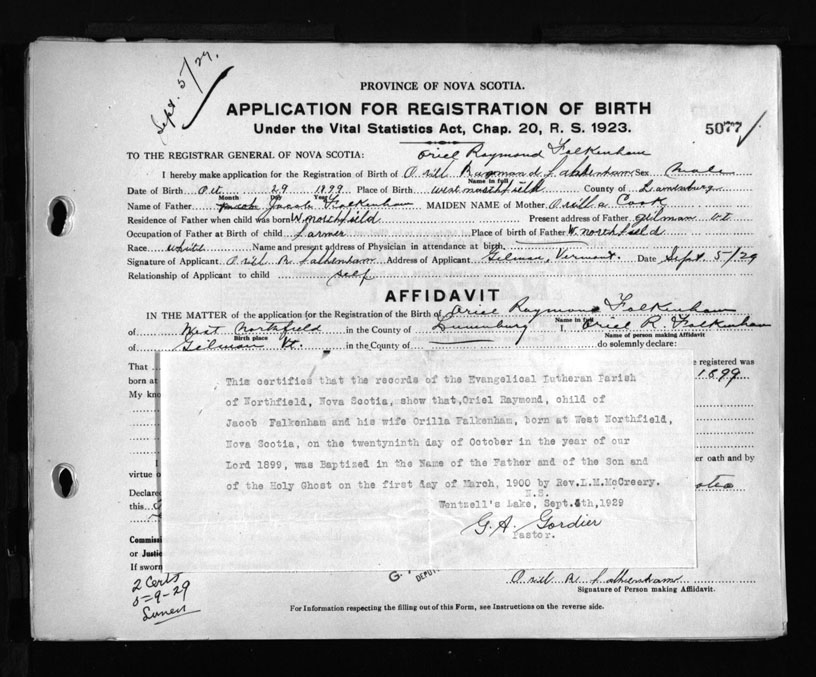 Sept. 5/29,
PROVINCE OF NOVA SCOTIA.
APPLICATION FOR REGISTRATION OF BIRTH
Under the Vital Statistics Act, Chap. 20, R. S. 1923.
5077
TO THE REGISTRAR GENERAL OF NOVA SCOTIA: Oriel Raymond Falkenham
I hereby make application for the Registration of Birth of Orill Raymond Falkenham Sex Male
Name in full
Date of Birth Oct 29 1899 Place of Birth West northfield County of Lunenburg
Month Day Year
Name of Father Jacob Falkenham MAIDEN NAME of Mother Orilla Cook
Residence of Father when child was born W. northfield Present address of Father gilman vt
Occupation of Father at Birth of child farmer Place of birth of Father W. northfield
Race white Name and present address of Physician in attendance at birth
Signature of Applicant Orill R. Falkenham Address of Applicant Gilman, Vermont. Date Sept. 5/29
Relationship of Applicant to child self
AFFIDAVIT
IN THE MATTER of the application for the Registration of the Birth of Oriel Raymond Falkenham
Name in full
of West Northfield in the County of Lunenburg I, Oriel R. Falkenham
Birth place Name of person making Affidavit
of Gilman Vt. in the County of do solemnly declare:
That e registered was
born at 1899
My kno
This certifies that the records of the Evangelical Lutheran Parish
of Northfield, Nova Scotia, show that, Oriel Raymond, child of
Jacob Falkenham and his wife Orilla Falkenham, born at West Northfield,
Nova Scotia, on the twentyninth day of October in the year of our
Lord 1899, was Baptized in the Name of the Father and of the Son and
of the Holy Ghost on the first day of March, 1900 by Rev.L.M.McCreery.
N.S.
Wentzell's Lake, Sept. 5th, 1929
G. A. Gordier
Pastor.
I er oath and by
virtue o
Declared
this
Commissi
or Justic
If sworn
2 Certs
5-9-29
G.
DEPUT
Orill R. Falkenham
Signature of Person making Affidavit.
For Information respecting the filling out of this Form, see Instructions on the reverse side.